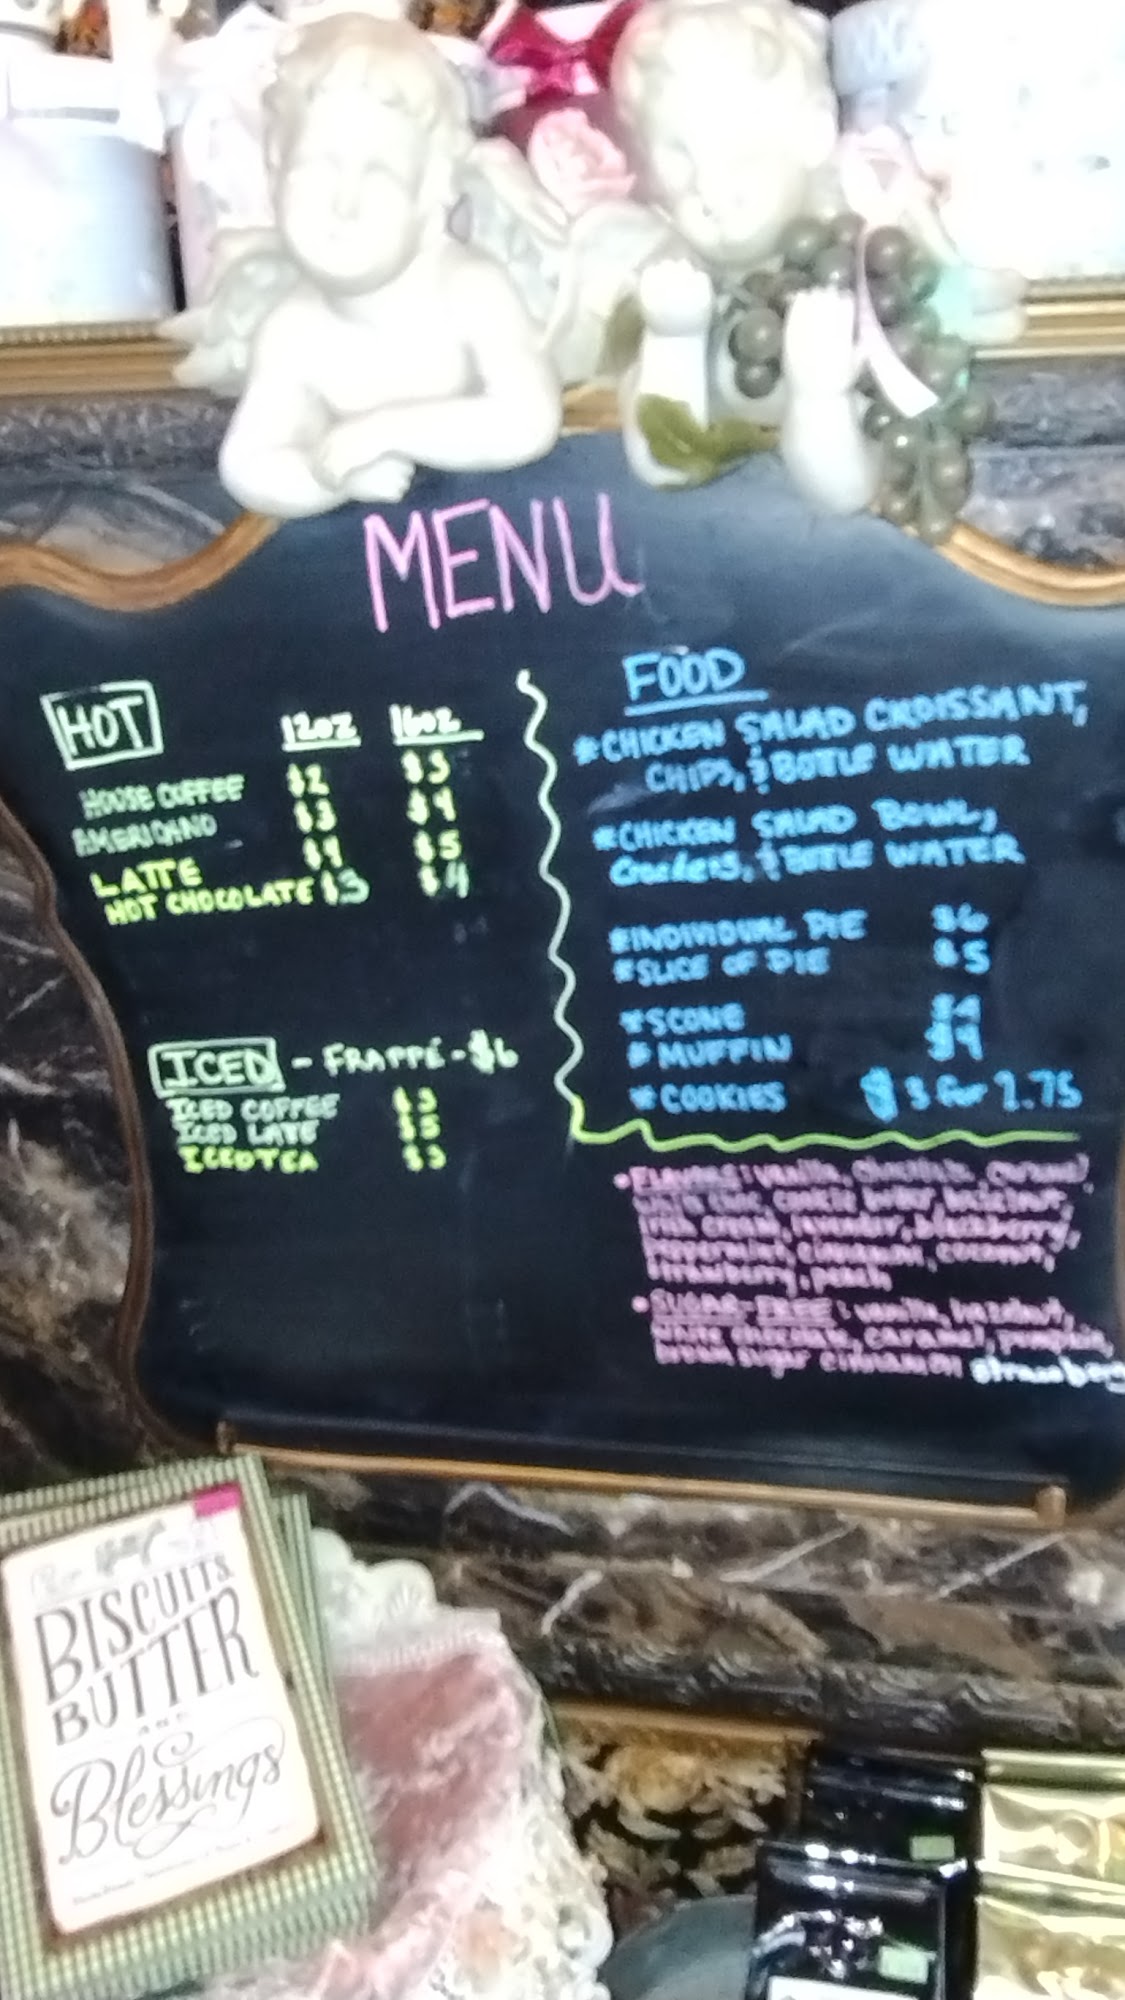 MENU
HOT 12oz 16oz
HOUSE COFFEE $2 $3
AMERICANO $3 $4
LATTE $4 $5
HOT CHOCOLATE $3 $4
ICED - FRAPPÉ - $6
ICED COFFEE $3
ICED LATE $5
ICED TEA $3
FOOD
*CHICKEN SALAD CROISSANT,
CHIPS, & BOTTLE WATER
*CHICKEN SALAD BOWL,
Crackers, & BOTTLE WATER
*INDIVIDUAL PIE $6
*SLICE OF PIE $5
*SCONE $4
*MUFFIN $4
*COOKIES $ 3 for 2.75
•FLAVORS: vanilla, chocolate, caramel,
cookie butter, hazelnut,
irish cream, lavender, blackberry,
peppermint, cinnamon, coconut,
strawberry, peach
•SUGAR-FREE: vanilla, hazelnut,
white chocolate, caramel, pumpkin,
brown sugar cinnamon strawberry
BISCUITS
BUTTER
AND
Blessings